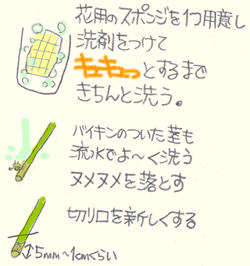 花用のスポンジを1つ用意し
洗剤をつけて
キュキュっとするまで
きちんと洗う。
バイキンのついた茎も
流水でよ～く洗う
ヌメヌメを落とす
切り口を新しくする
5mm～1cmくらい